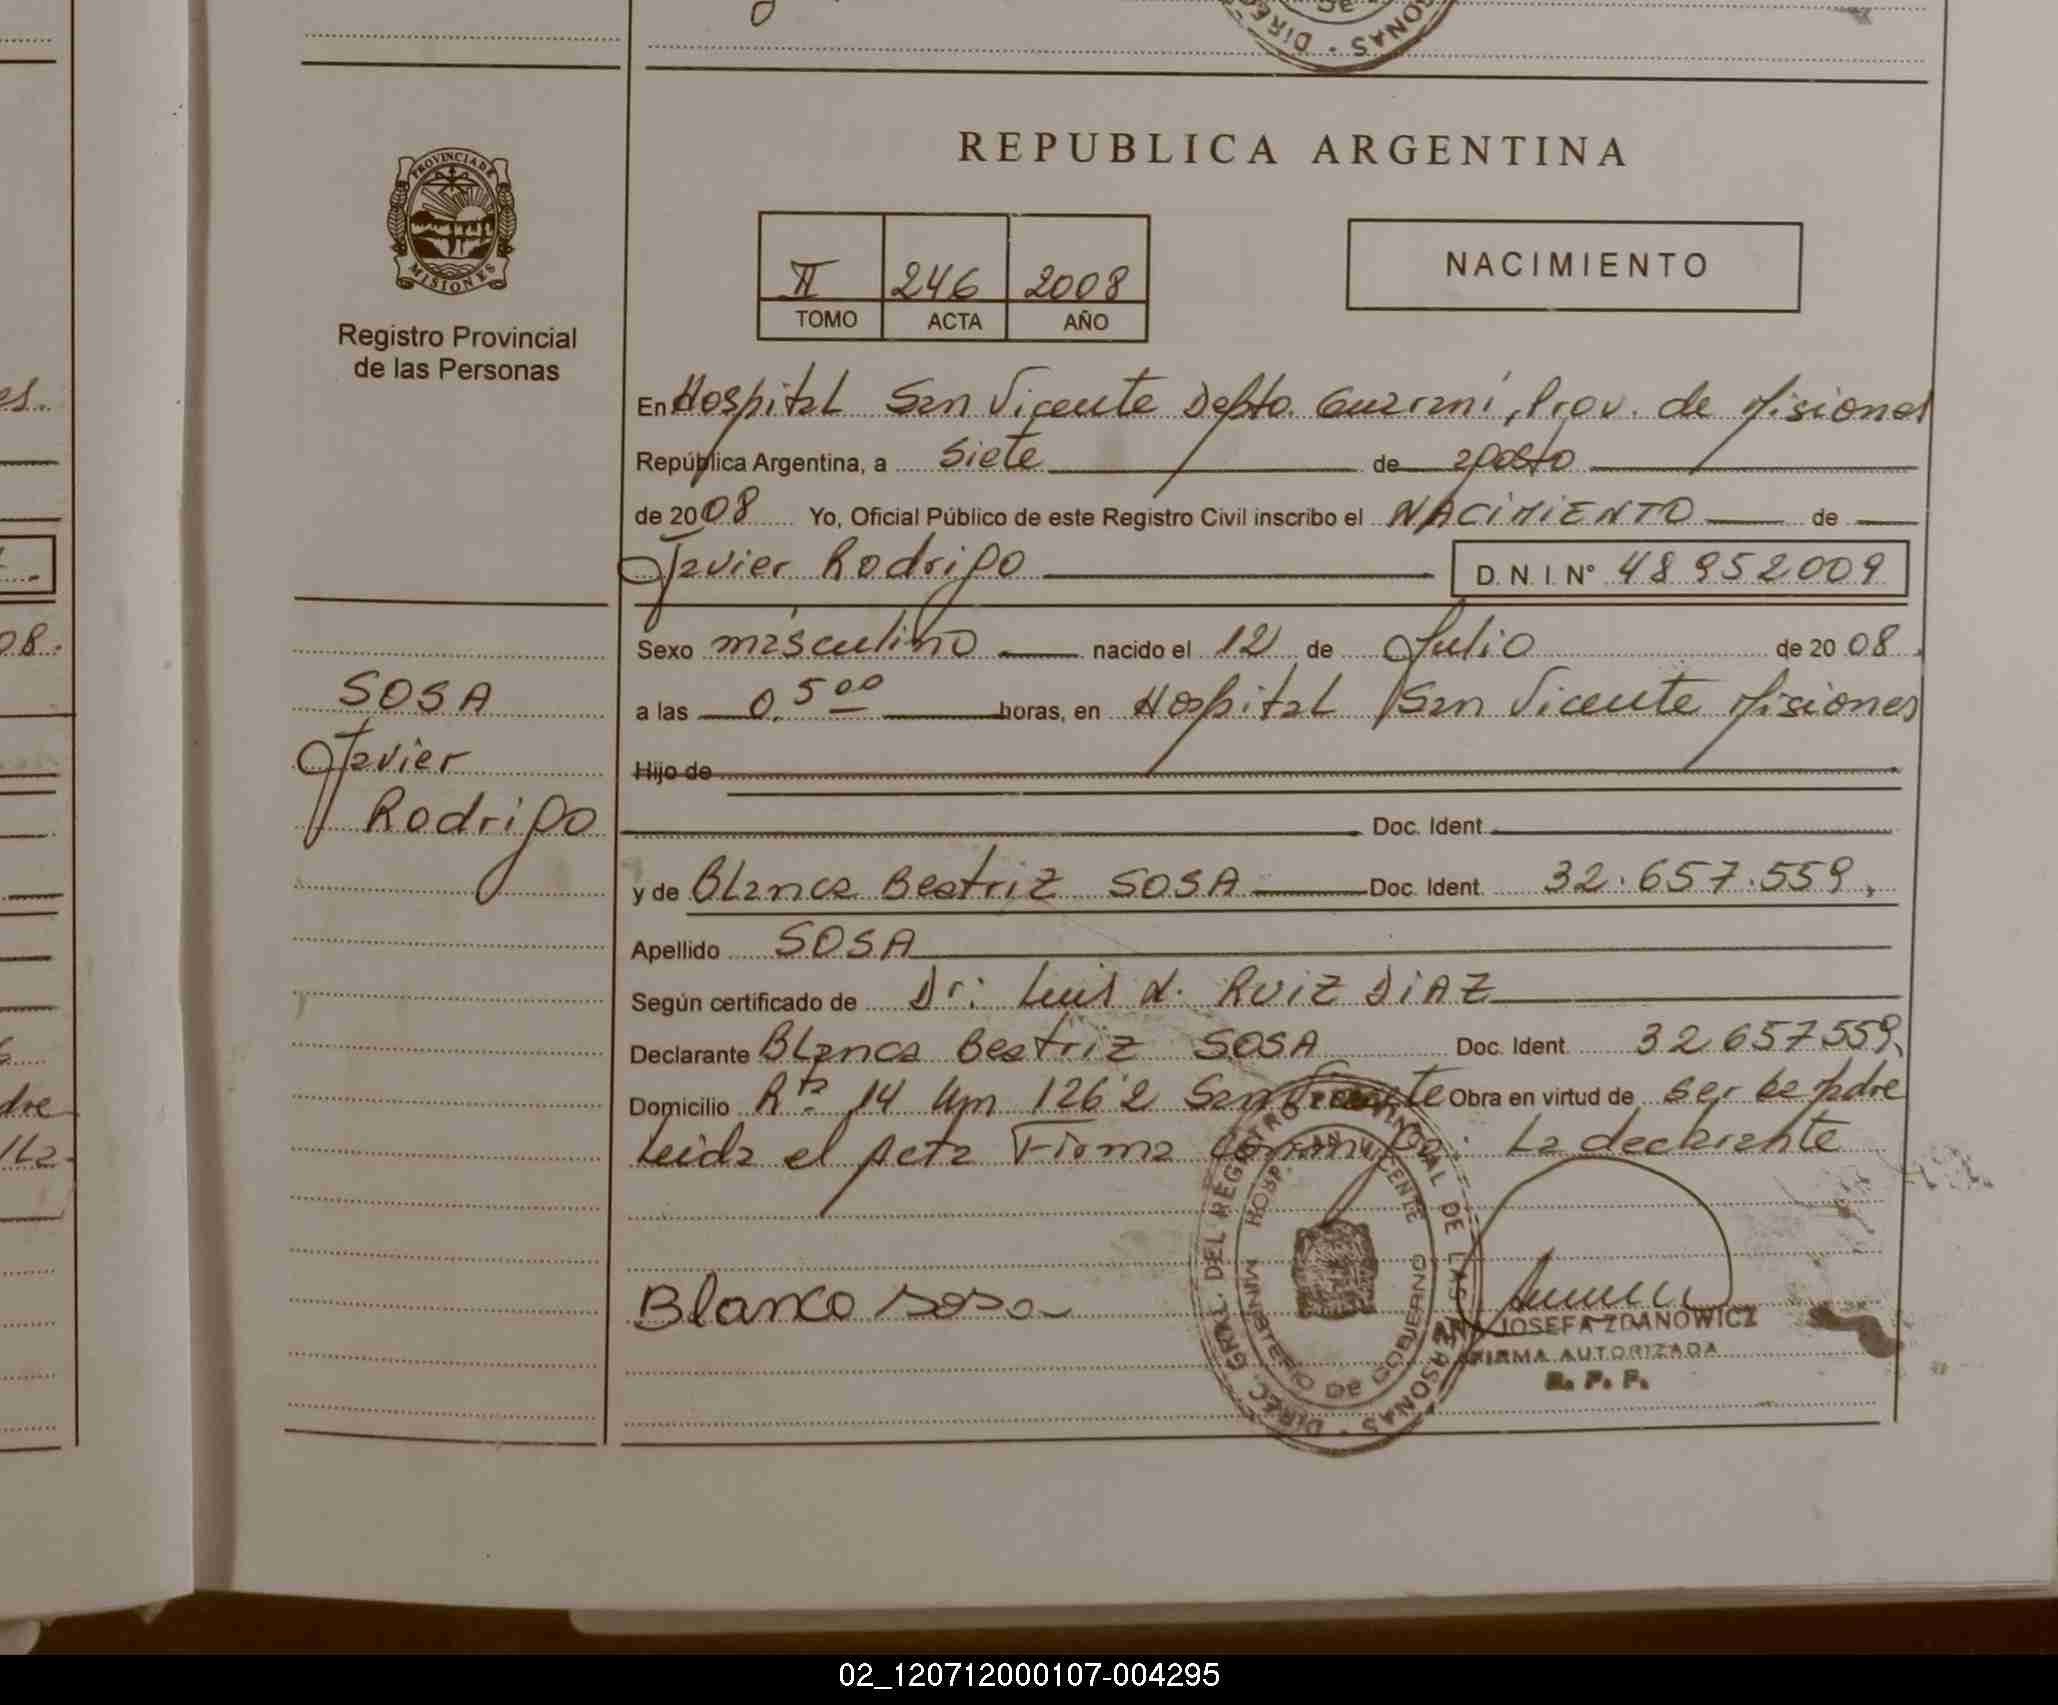 REPUBLICA ARGENTINA
PROVINCIA DE
MISIONES
Registro Provincial
de las Personas
II 246 2008
TOMO ACTA AÑO
NACIMIENTO
En Hospital San Vicente Depto. Guaraní, Prov. de Misiones
República Argentina, a siete de agosto
de 2008 Yo, Oficial Público de este Registro Civil inscribo el NACIMIENTO de
Javier Rodrigo D.N.I. N° 48952009
Sexo masculino nacido el 12 de Julio de 2008.
a las 0.5 00 horas, en Hospital San Vicente Misiones
Hijo de
Doc. Ident.
y de Blanca Beatriz SOSA Doc. Ident. 32.657.559.
Apellido SOSA
Según certificado de Dr: Luis A. RUIZ DIAZ
Declarante Blanca Beatriz SOSA Doc. Ident. 32657559
Domicilio Rta 14 Km 1262 San Vicente Obra en virtud de ser la padre
Leida el acta Firma Conmigo: La declarante
SOSA
Javier
Rodrigo
Blanca Sosa
DIREC. GRAL. DEL REGISTRO PROVINCIAL DE LAS PERSONAS
HOSP. SAN VICENTE
MINISTERIO DE GOBIERNO
JOSEFA ZDANOWICZ
FIRMA AUTORIZADA
R. P. P.
02_120712000107-004295